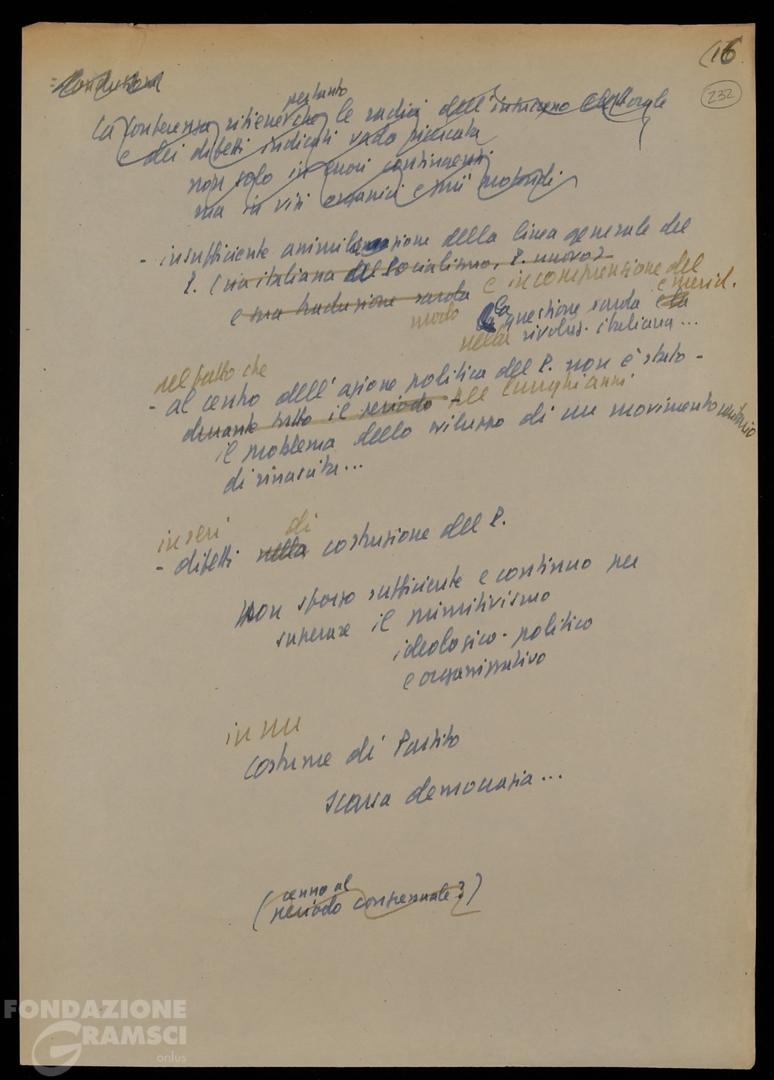 (16
232
= Conclusioni
pertanto
La Conferenza ritiene che le radici dell'insuccesso elettorale
e dei difetti indicati vada ricercata
non solo in errori contingenti
ma in vizi organici e più profondi
- insufficiente assimilazione della linea generale del
P. (via italiana del Socialismo, P. nuovo)
e sua traduzione sarda e incomprensione del
modo la questione sarda e la e merid.
nella rivoluz. italiana...
nel fatto che
- al centro dell'azione politica del P. non è stato -
durante tutto il periodo per lunghi anni
il problema dello sviluppo di un movimento unitario
di rinascita...
in seri di
- difetti nella costruzione del P.
Non sforzo sufficiente e continuo per
superare il primitivismo
ideologico-politico
e organizzativo
in un
costume di Partito
scarsa democrazia...
cenno al
(periodo congressuale?)
FONDAZIONE
GRAMSCI
onlus